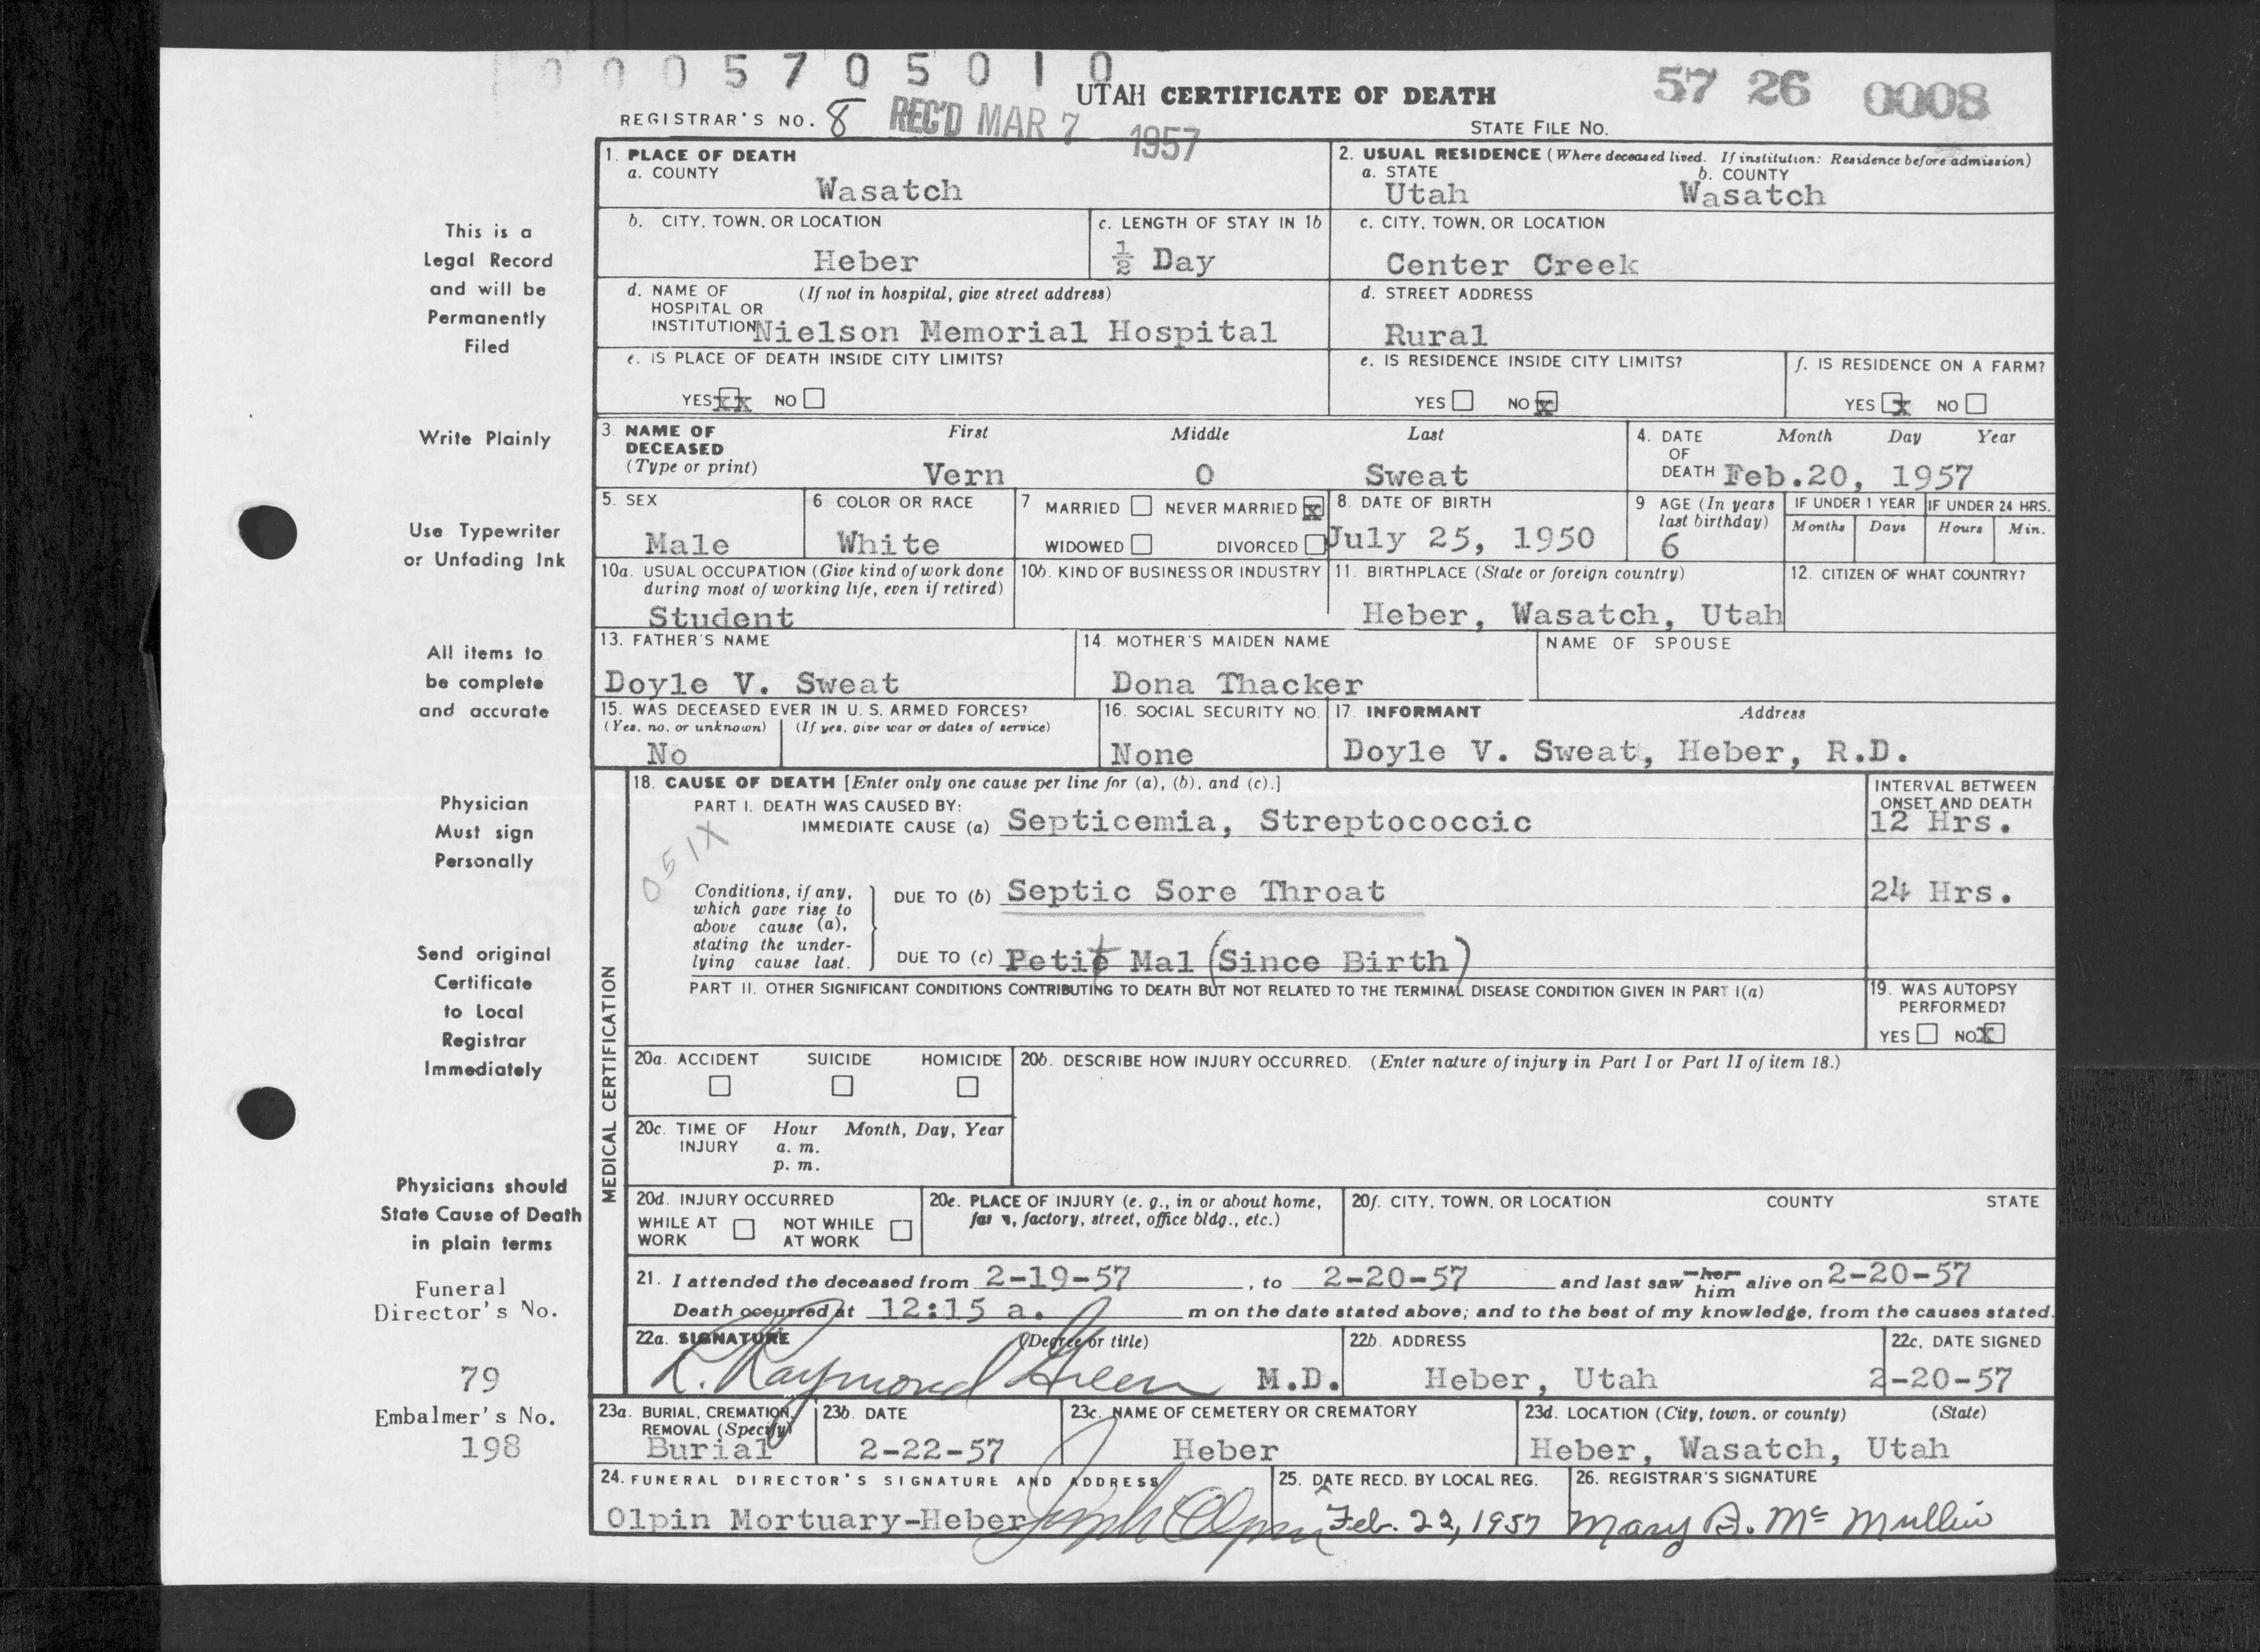 0 0 0 5 7 0 5 0 1 0
UTAH CERTIFICATE OF DEATH
57 26 0008
REGISTRAR'S NO. 8 REC'D MAR 7 1957
STATE FILE No.
1. PLACE OF DEATH
a. COUNTY
Wasatch
2. USUAL RESIDENCE (Where deceased lived. If institution: Residence before admission)
a. STATE b. COUNTY
Utah Wasatch
b. CITY, TOWN, OR LOCATION
Heber
c. LENGTH OF STAY IN 1b
½ Day
c. CITY, TOWN, OR LOCATION
Center Creek
d. NAME OF (If not in hospital, give street address)
HOSPITAL OR
INSTITUTION Nielson Memorial Hospital
d. STREET ADDRESS
Rural
e. IS PLACE OF DEATH INSIDE CITY LIMITS?
YES xx NO
e. IS RESIDENCE INSIDE CITY LIMITS?
YES NO x
f. IS RESIDENCE ON A FARM?
YES x NO
3. NAME OF DECEASED (Type or print)
First Middle Last
Vern O Sweat
4. DATE OF DEATH Month Day Year
Feb.20, 1957
5. SEX
Male
6 COLOR OR RACE
White
7 MARRIED NEVER MARRIED x
WIDOWED DIVORCED
8. DATE OF BIRTH
July 25, 1950
9 AGE (In years last birthday)
6
IF UNDER 1 YEAR IF UNDER 24 HRS.
Months Days Hours Min.
10a. USUAL OCCUPATION (Give kind of work done
during most of working life, even if retired)
Student
10b. KIND OF BUSINESS OR INDUSTRY
11. BIRTHPLACE (State or foreign country)
Heber, Wasatch, Utah
12. CITIZEN OF WHAT COUNTRY?
13. FATHER'S NAME
Doyle V. Sweat
14. MOTHER'S MAIDEN NAME
Dona Thacker
NAME OF SPOUSE
15. WAS DECEASED EVER IN U. S. ARMED FORCES?
(Yes, no, or unknown) (If yes, give war or dates of service)
No
16. SOCIAL SECURITY NO.
None
17. INFORMANT Address
Doyle V. Sweat, Heber, R.D.
MEDICAL CERTIFICATION
18. CAUSE OF DEATH [Enter only one cause per line for (a), (b), and (c).]
PART I. DEATH WAS CAUSED BY:
IMMEDIATE CAUSE (a) Septicemia, Streptococcic
INTERVAL BETWEEN
ONSET AND DEATH
12 Hrs.
051X
Conditions, if any,
which gave rise to
above cause (a),
stating the under-
lying cause last.
DUE TO (b) Septic Sore Throat
24 Hrs.
DUE TO (c) Petit Mal (Since Birth)
PART II. OTHER SIGNIFICANT CONDITIONS CONTRIBUTING TO DEATH BUT NOT RELATED TO THE TERMINAL DISEASE CONDITION GIVEN IN PART I(a)
19. WAS AUTOPSY
PERFORMED?
YES NO X
20a. ACCIDENT SUICIDE HOMICIDE
20b. DESCRIBE HOW INJURY OCCURRED. (Enter nature of injury in Part I or Part II of item 18.)
20c. TIME OF INJURY Hour Month, Day, Year
a. m.
p. m.
20d. INJURY OCCURRED
WHILE AT WORK NOT WHILE AT WORK
20e. PLACE OF INJURY (e. g., in or about home,
factory, street, office bldg., etc.)
20f. CITY, TOWN, OR LOCATION COUNTY STATE
21. I attended the deceased from 2-19-57, to 2-20-57 and last saw her him alive on 2-20-57
Death occurred at 12:15 a. m on the date stated above; and to the best of my knowledge, from the causes stated.
22a. SIGNATURE (Degree or title)
R. Raymond Green M.D.
22b. ADDRESS
Heber, Utah
22c. DATE SIGNED
2-20-57
23a. BURIAL, CREMATION,
REMOVAL (Specify)
Burial
23b. DATE
2-22-57
23c. NAME OF CEMETERY OR CREMATORY
Heber
23d. LOCATION (City, town, or county) (State)
Heber, Wasatch, Utah
24. FUNERAL DIRECTOR'S SIGNATURE AND ADDRESS
Olpin Mortuary-Heber Joseph Olpin
25. DATE RECD. BY LOCAL REG.
Feb. 22, 1957
26. REGISTRAR'S SIGNATURE
Mary B. Mc Mullin
This is a
Legal Record
and will be
Permanently
Filed
Write Plainly
Use Typewriter
or Unfading Ink
All items to
be complete
and accurate
Physician
Must sign
Personally
Send original
Certificate
to Local
Registrar
Immediately
Physicians should
State Cause of Death
in plain terms
Funeral
Director's No.
79
Embalmer's No.
198